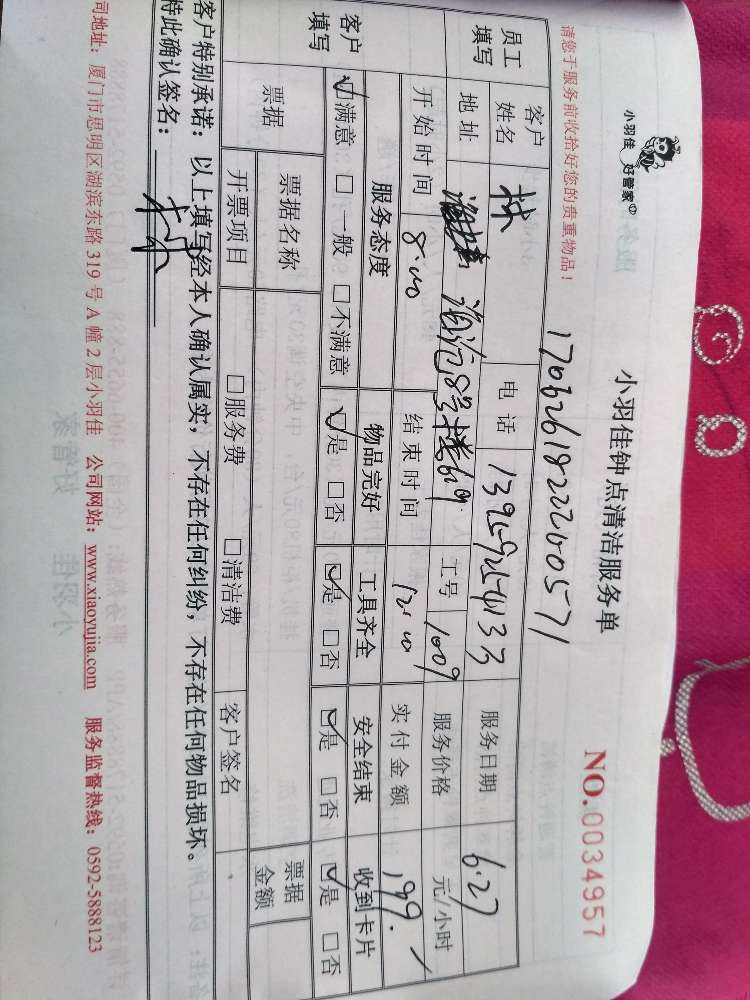 小羽佳 好管家
小羽佳钟点清洁服务单
NO.0034957
请您于服务前收拾好您的贵重物品！
员工填写
客户姓名 林 电话 服务日期 6.27
地址 工号 1009 服务价格 元/小时
开始时间 8:00 结束时间 12:00 实付金额 199.
客户填写
服务态度 物品完好 工具齐全 安全结束 收到卡片
☑满意 □一般 □不满意 ☑是 □否 ☑是 □否 ☑是 □否 ☑是 □否
票据 票据名称 票据金额
开票项目 □服务费 □清洁费 客户签名
客户特别承诺：以上填写经本人确认属实，不存在任何纠纷，不存在任何物品损坏。
特此确认签名：
司地址：厦门市思明区湖滨东路 319 号 A 幢 2 层小羽佳 公司网站：www.xiaoyujia.com 服务监督热线：0592-5888123